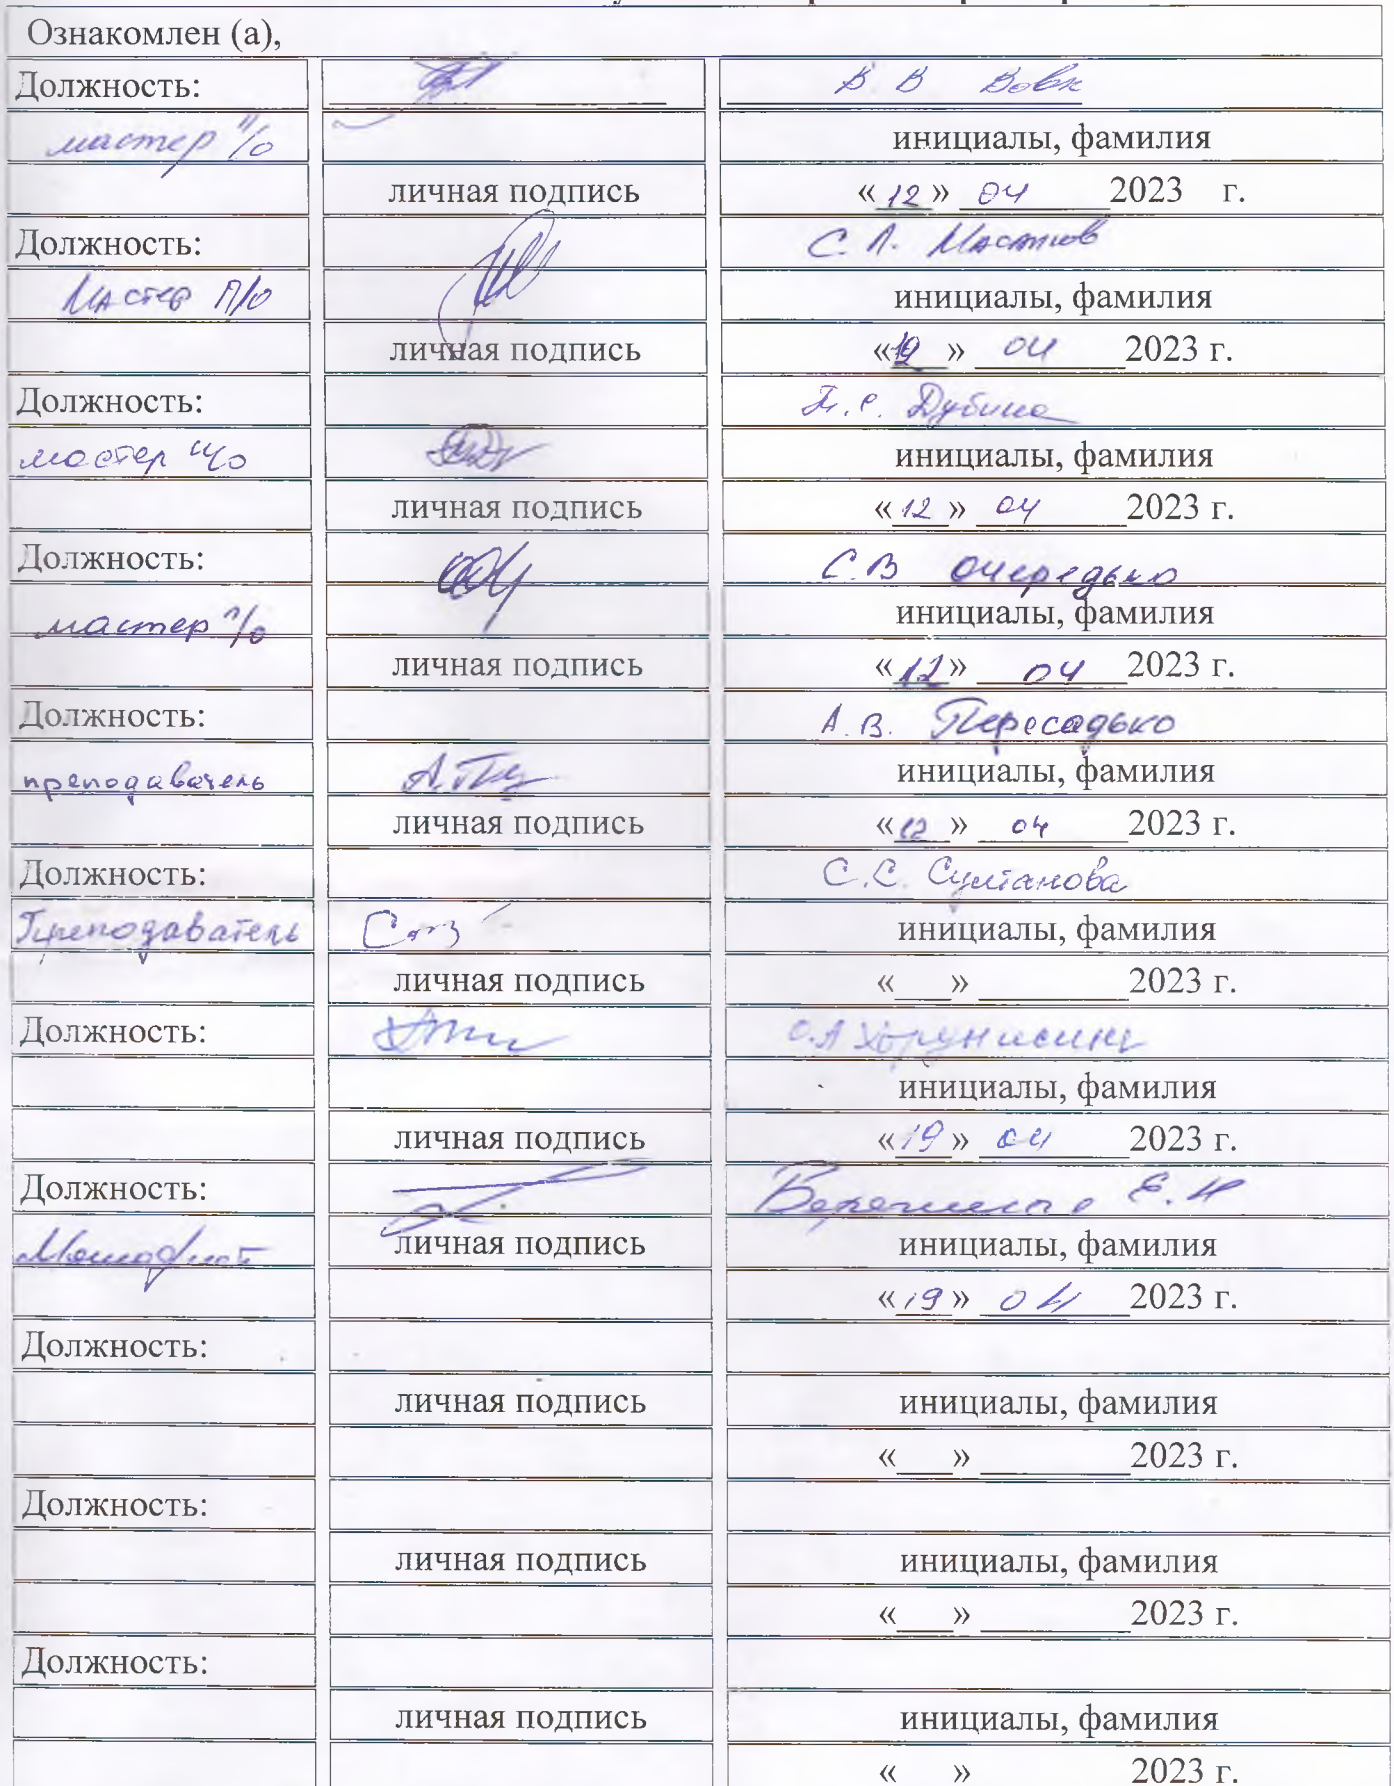 Ознакомлен (а),
Должность: В. В Вовк
мастер п/о инициалы, фамилия
личная подпись «12» 04 2023 г.
Должность: С. А.
Мастер П/о инициалы, фамилия
личная подпись « » 04 2023 г.
Должность: Дубина
мастер п/о инициалы, фамилия
личная подпись «12» 04 2023 г.
Должность: С.В Очередько
мастер п/о инициалы, фамилия
личная подпись «12» 04 2023 г.
Должность: А.В. Пересадько
преподаватель инициалы, фамилия
личная подпись «12» 04 2023 г.
Должность: С.С. Султанова
Преподаватель инициалы, фамилия
личная подпись «___» ________ 2023 г.
Должность: О.А
инициалы, фамилия
личная подпись «19» 04 2023 г.
Должность:
личная подпись инициалы, фамилия
«19» 04 2023 г.
Должность:
личная подпись инициалы, фамилия
«___» ________ 2023 г.
Должность:
личная подпись инициалы, фамилия
«___» ________ 2023 г.
Должность:
личная подпись инициалы, фамилия
« » 2023 г.